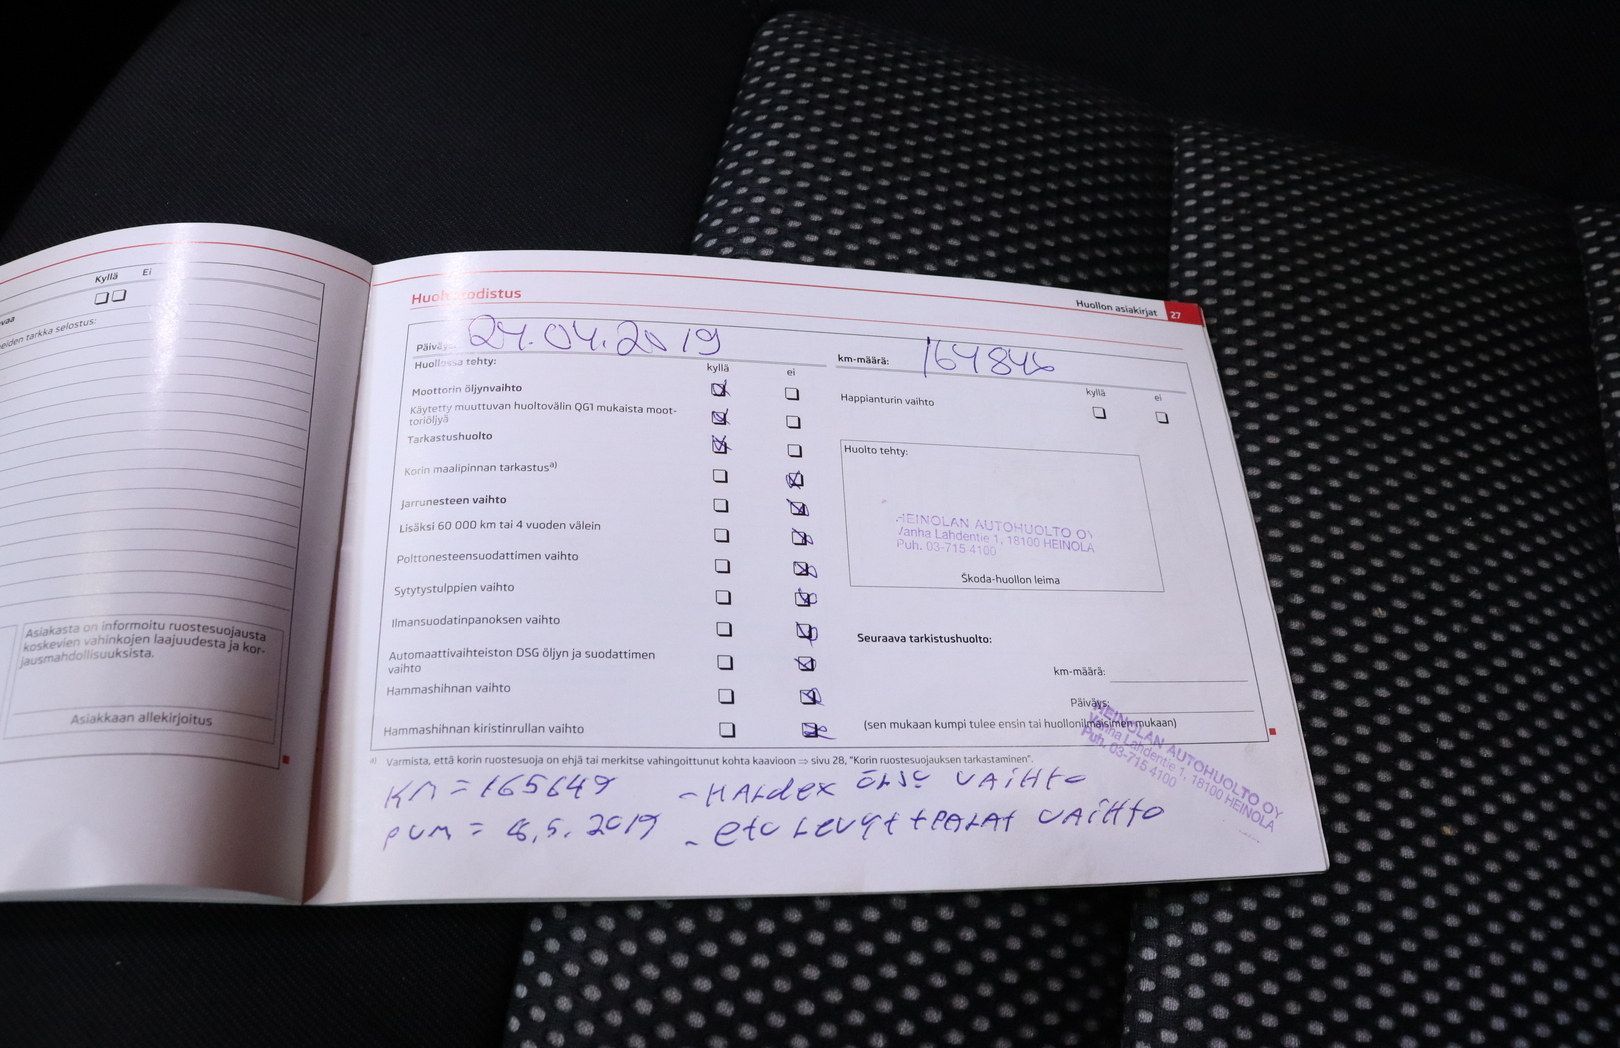 Kyllä Ei
vaa
eiden tarkka selostus:
Asiakasta on informoitu ruostesuojausta
koskevien vahinkojen laajuudesta ja kor-
jausmahdollisuuksista.
Asiakkaan allekirjoitus
Huollon asiakirjat 27
Päiväys: 24.04.2019
km-määrä: 164846
Huollossa tehty: kyllä ei
Moottorin öljynvaihto
Käytetty muuttuvan huoltovälin QG1 mukaista moot-
toriöljyä
Tarkastushuolto
Korin maalipinnan tarkastusa)
Jarrunesteen vaihto
Lisäksi 60 000 km tai 4 vuoden välein
Polttonesteensuodattimen vaihto
Sytytystulppien vaihto
Ilmansuodatinpanoksen vaihto
Automaattivaihteiston DSG öljyn ja suodattimen
vaihto
Hammashihnan vaihto
Hammashihnan kiristinrullan vaihto
kyllä ei
Happianturin vaihto
Huolto tehty:
HEINOLAN AUTOHUOLTO OY
Vanha Lahdentie 1, 18100 HEINOLA
Puh. 03-715 4100
Škoda-huollon leima
Seuraava tarkistushuolto:
km-määrä:
Päiväys:
(sen mukaan kumpi tulee ensin tai huollonilmaisimen mukaan)
HEINOLAN AUTOHUOLTO OY
Vanha Lahdentie 1, 18100 HEINOLA
Puh. 03-715 4100
a) Varmista, että korin ruostesuoja on ehjä tai merkitse vahingoittunut kohta kaavioon ⇒ sivu 28, "Korin ruostesuojauksen tarkastaminen".
KM = 165649 - HALDEX ÖLJY VAIHTO
PVM = 8.5.2019 - ETU LEVYT + PALAT VAIHTO